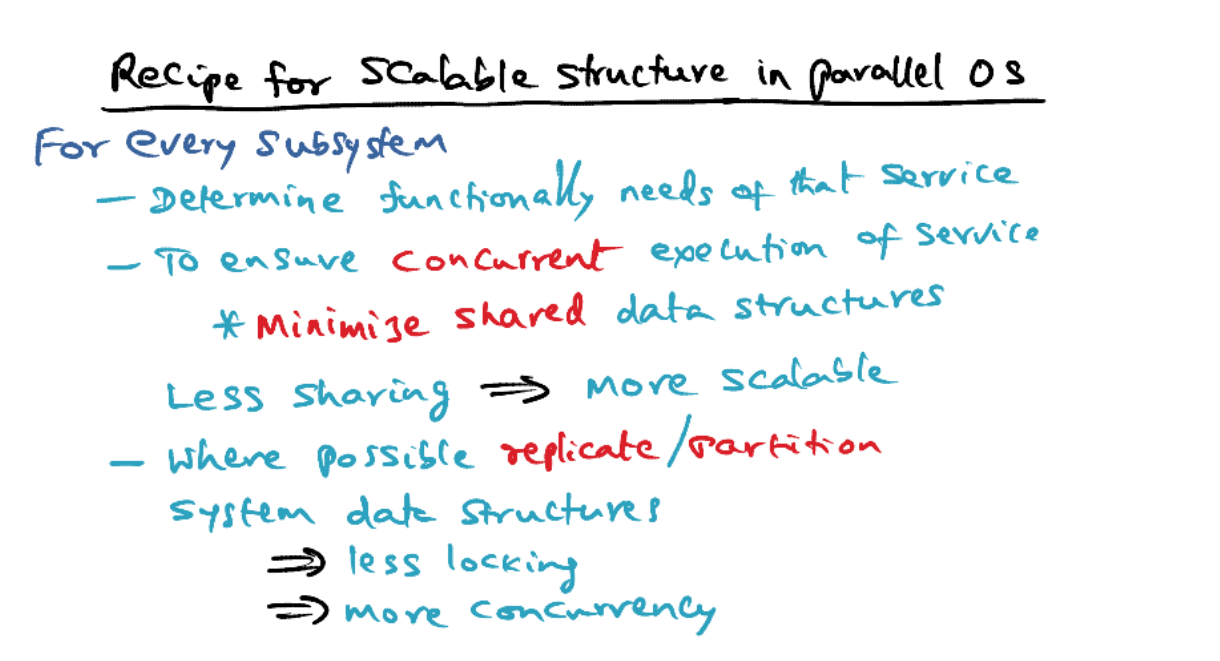 Recipe for scalable structure in parallel OS
For every subsystem
- Determine functionally needs of that service
- To ensure concurrent execution of service
* Minimize shared data structures
Less sharing ⇒ more scalable
- where possible replicate/partition
system data structures
⇒ less locking
⇒ more concurrency